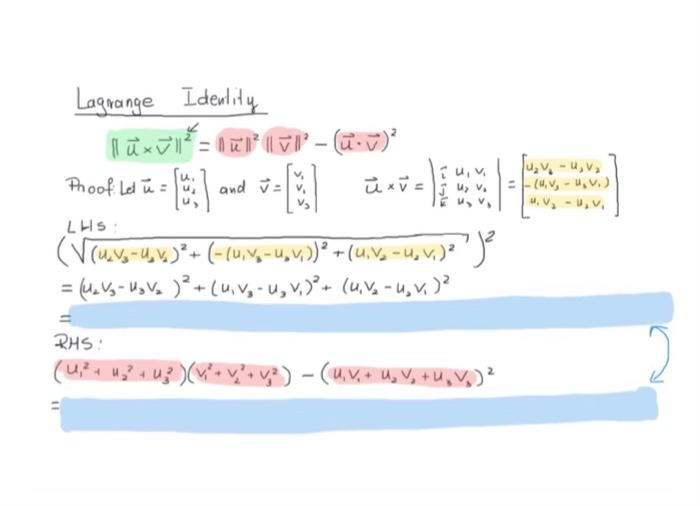 Lagrange Identity
‖u⃗ × v⃗‖² = ‖u⃗‖² ‖v⃗‖² - (u⃗ · v⃗)²
Proof: Let u⃗ = [u₁ u₂ u₃] and v⃗ = [v₁ v₂ v₃] u⃗ × v⃗ = |i⃗ u₁ v₁ j⃗ u₂ v₂ k⃗ u₃ v₃| = [u₂v₃ - u₃v₂ -(u₁v₃ - u₃v₁) u₁v₂ - u₂v₁]
LHS:
(√((u₂v₃-u₃v₂)² + (-(u₁v₃-u₃v₁))² + (u₁v₂-u₂v₁)²))²
= (u₂v₃-u₃v₂)² + (u₁v₃-u₃v₁)² + (u₁v₂-u₂v₁)²
=
RHS:
(u₁² + u₂² + u₃²)(v₁² + v₂² + v₃²) - (u₁v₁ + u₂v₂ + u₃v₃)²
=